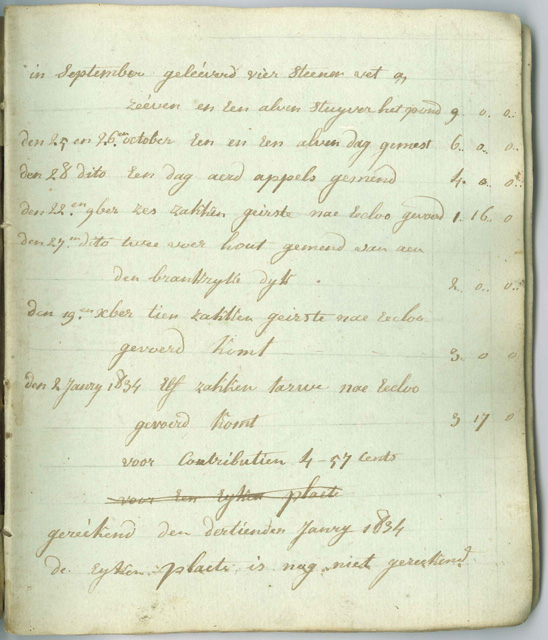 in September geléeverd vier steenen vet a
zeéven en een alven stuyver het pond 9 0 0
den 25 en 26.en october een en een alven dag gemest 6 0 0
den 28 dito een dag aerd appels gemend 4 0 0
den 22.en 9ber zes zakken geirste nae Eecloo gevoerd 1 16 0
den 27.en dito twee voer hout gemend van aen
den brankryke dyk 2 0 0
den 19.en xber tien zakken geirste nae Eecloo
gevoerd komt 3 0 0
den 2 Janry 1834 Elf zakken tarwe nae Eecloo
gevoerd komt 3 17 0
voor Contributien 4-57 Cents
voor een eyken plaete
geréekend den dertienden Janry 1834
de eyken plaete is nog niet gereekend